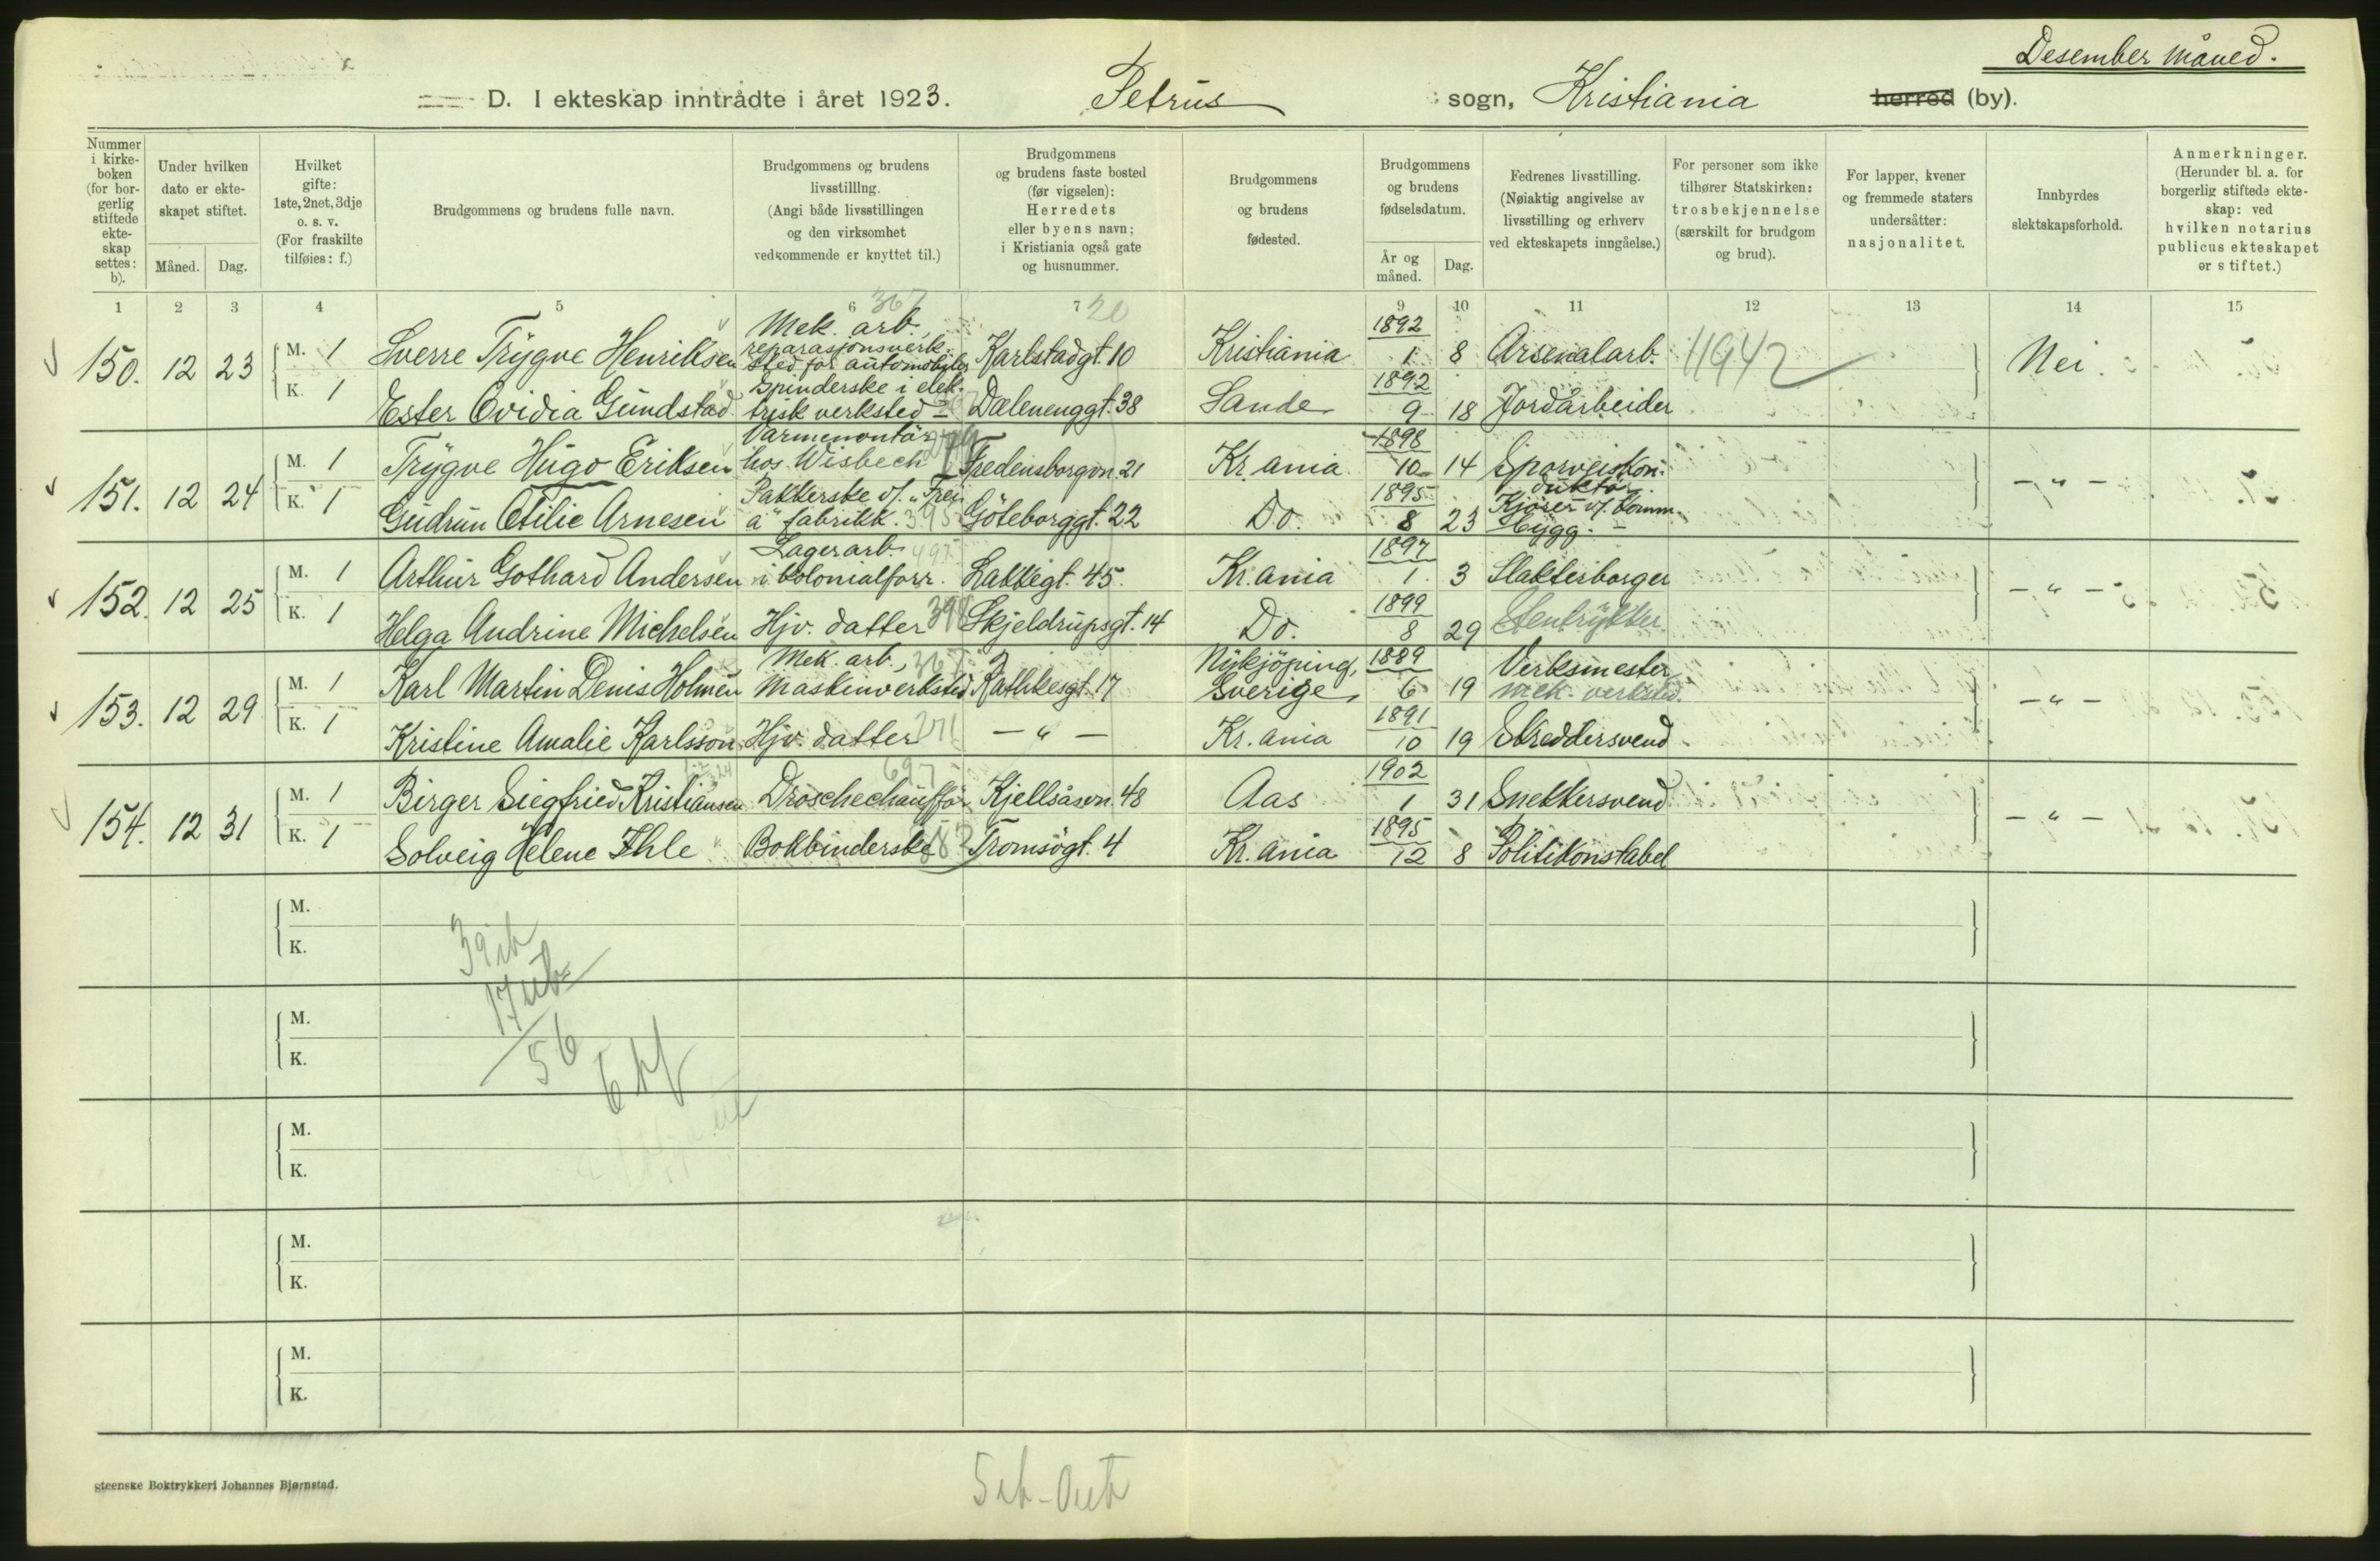 Desember måned.
D. I ekteskap inntrådte i året 1923. Petrus sogn, Kristiania herred (by).
Nummer i kirke-boken (for bor-gerlig stiftede ekte-skap settes: b).
Under hvilken dato er ekte-skapet stiftet.
Måned. Dag.
Hvilket gifte: 1ste, 2net, 3dje o. s. v. (For fraskilte tilføies: f.)
Brudgommens og brudens fulle navn.
Brudgommens og brudens livsstilling. (Angi både livsstillingen og den virksomhet vedkommende er knyttet til.)
Brudgommens og brudens faste bosted (før vigselen): Herredets eller byens navn; i Kristiania også gate og husnummer.
Brudgommens og brudens fødested.
Brudgommens og brudens fødselsdatum.
År og måned. Dag.
Fedrenes livsstilling. (Nøiaktig angivelse av livsstilling og erhverv ved ekteskapets inngåelse.)
For personer som ikke tilhører Statskirken: trosbekjennelse (særskilt for brudgom og brud).
For lapper, kvener og fremmede staters undersåtter: nasjonalitet.
Innbyrdes slektskapsforhold.
Anmerkninger. (Herunder bl. a. for borgerlig stiftede ekte-skap: ved hvilken notarius publicus ekteskapet er stiftet.)
1 2 3 4 5 6 7 9 10 11 12 13 14 15
367 20
150. 12 23 M. 1 Sverre Trygve Henriksen Mek. arb., reparasjonsverk-sted for automobiler Karlstadgt. 10 Kristiania 1892 1 8 Arsenalarb. 11942 Nei.
K. 1 Ester Ovidia Gundstad Spinderske i elek-trisk verksted Dælenenggt. 38 Sande 1892 9 18 Jordarbeider
151. 12 24 M. 1 Trygve Hugo Eriksen Varmemontør hos Wisbech Fredensborgvn. 21 Kr.ania 1898 10 14 Sporveiskon-duktør - " -
K. 1 Gudrun Otilie Arnesen Pakkerske v/. "Frei-a" fabrikk. 395 Göteborggt. 22 Do. 1895 8 23 Kjører v/. komm. bygg.
152. 12 25 M. 1 Arthur Gothard Andersen Lagerarb. i kolonialforr. Lakkegt. 45. Kr.ania 1897 1 3 Slakterborger - " -
K. 1 Helga Andrine Michelsen Hjv. datter 398 Skjeldrupsgt. 14 Do. 1899 8 29 Stentrykker
153. 12 29 M. 1 Karl Martin Denis Holmén Mek. arb., 367 maskinverksted Rathkesgt. 17 Nykjöping, Sverige 1889 6 19 Verksmester mek. verksted. - " -
K. 1 Kristine Amalie Karlsson Hjv. datter 271 - " - Kr.ania 1891 10 19 Skreddersvend
154. 12 31 M. 1 Birger Siegfried Kristiansen Droschechauffør 697 Kjellsåsvn. 48 Aas 1902 1 31 Snekkersvend - " -
K. 1 Solveig Helene Ihle Bokbinderske Tromsögt. 4 Kr.ania 1895 12 8 Politikonstabel
M.
K.
M.
K.
56
M.
K.
M.
K.
M.
K.
steenske Boktrykkeri Johannes Bjørnstad.